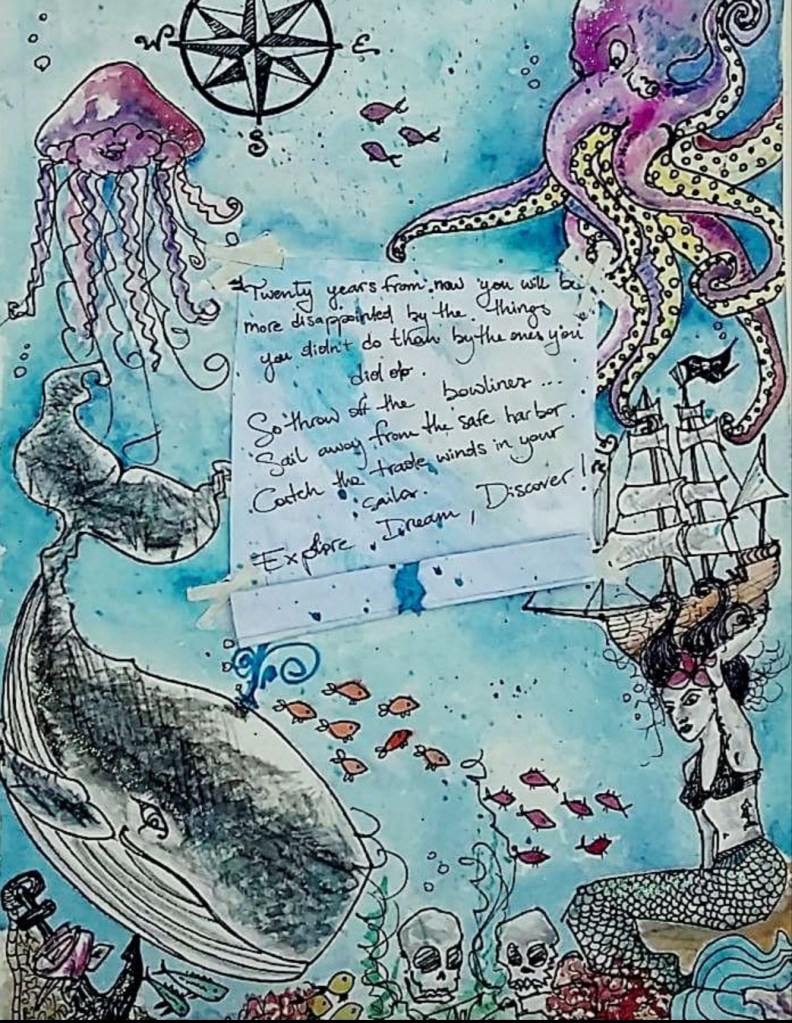 W E
S
Twenty years from now you will be
more disappointed by the things
you didn't do then by the ones you
did do.
So throw off the bowlines...
Sail away from the safe harbor.
Catch the trade winds in your
sailor.
Explore, Dream, Discover!